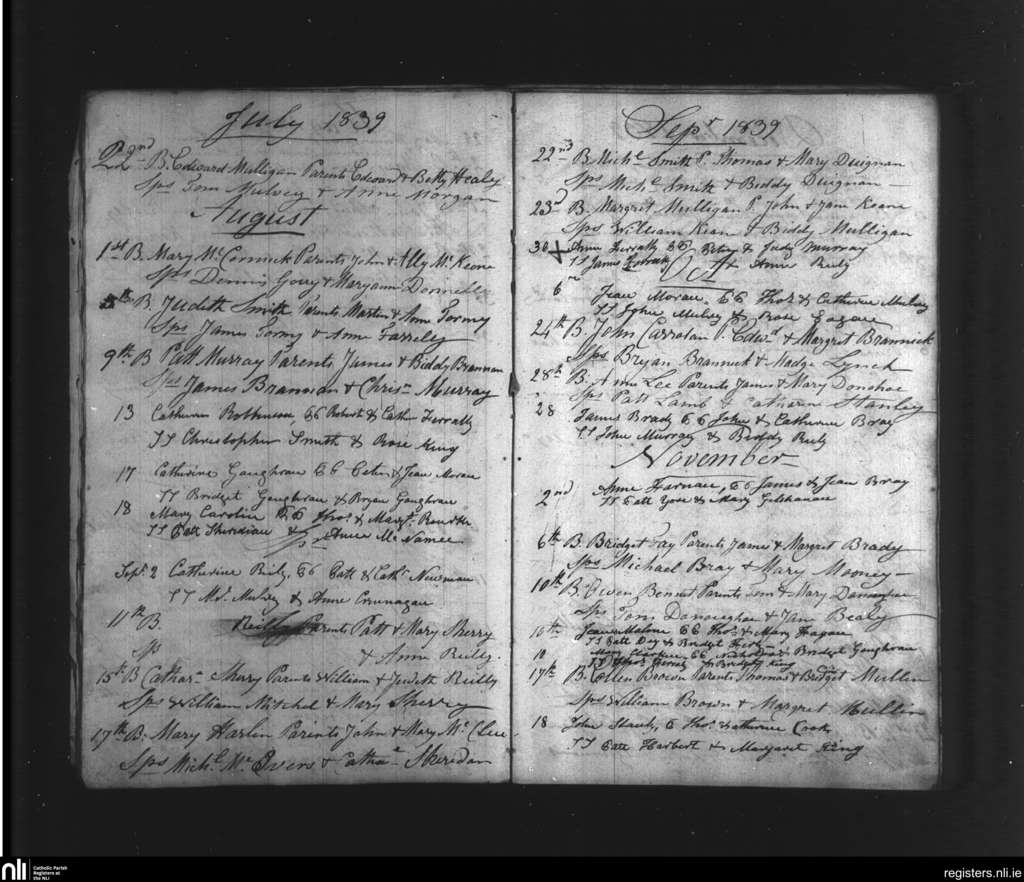 July 1839
22nd B. Edward Mulligan Parents Edward & Betty Healy
Sps Tom Mulvey & Anne Morgan
August
1st B. Mary McCormick Parents John & Ally McKeone
Sps Dennis & Maryann Donnell
B. Judith Smith Parents Martin & Ann Tormy
Sps James Tormy & Anne Farrelly
9th B Patt Murray Parents James & Biddy Brannan
Sps James Brannan & Chrisn Murray
13 Catherine Robert & Cath
SS Christopher Smith & Rose King
17 Catherine Gaughran & Jean Moran
SS Bridget Gaughran & Bryan Gaughran
18 Mary Thos & Margt
SS Patt Sheridan & Anne McNamee
Sept 2 Catherine Reily, Patt & Cath Newman
SS & Anne
11th B Reilly Parents Patt & Mary Sherry
Sps & Anne Reilly
15th B Cathar Mary Parents William & Judith Reilly
Sps William Mitchel & Mary Sherry
17th B. Mary Harlin Parents John & Mary
Sps Michl McEvers & Catha Sheridan
Sepr 1839
22nd B. Michl Smith P. Thomas & Mary Duignan
Sps Michl Smith & Biddy Duignan
23d B. Margret Mulligan P. John & Jane Keone
Sps William Kean & Biddy Mulligan
30 Anne & Judy Murray
SS James & Anne Reily
6 Jean Moran Thos & Catherine Mulvey
SS John Mulvey & Rose
24th B. John Carrolan P. Edwd & Margret Brannick
Sps Bryan Brannick & Madge Lynch
28th B. Anne Lee Parents James & Mary Donohoe
Sps Patt Lamb & Catharine Stanley
28 James Brady John & Catherine Bray
SS John Murray & Biddy Reily
November
2nd Anne Farnan, James & Jean Bray
SS Patt & Mary
6th B. Bridget Fay Parents James & Margret Brady
Sps Michael Bray & Mary Mooney
10th B. Owen Bennet Parents & Mary
Sps Tom Donoughoe & Jane Bealy
10th Jean Malone Thos & Mary Fagan
SS Patt Day & Bridget
10 Mary Nicholas & Bridget Gaughran
SS Thos & Bridget King
17th B. Ellen Brown Parents Thomas & Bridget Mullin
Sps William Brown & Margret Mullin
18 John Thos Catherine Cook
SS Patt Harbert & Margaret King
nli
Catholic Parish
Registers at
the NLI
registers.nli.ie